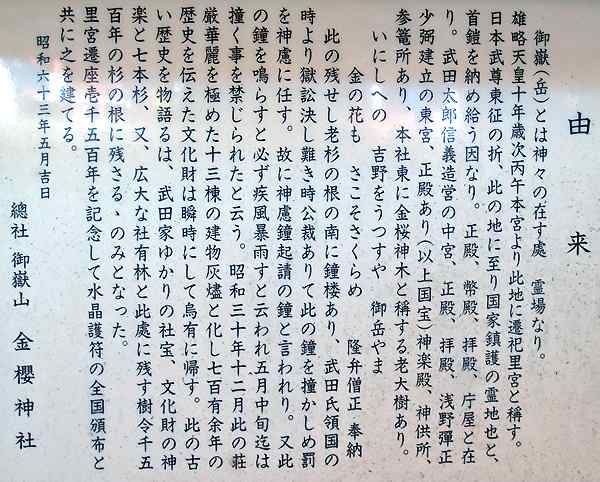 由来
御嶽(岳)とは神々の在す處　霊場なり。
雄略天皇十年歳次丙午本宮より此地に遷祀里宮と稱す。
日本武尊東征の折、此の地に至り国家鎮護の霊地也と、
首鎧を納め給う因なり。正殿、幣殿、拝殿、庁屋と在
り。武田太郎信義造営の中宮、正殿、拝殿、浅野彈正
少弼建立の東宮、正殿あり(以上国宝)神楽殿、神供所、
参篭所あり、本社東に金桜神木と稱する老大樹あり。
いにしへの　吉野をうつすや　御岳やま
金の花も　さこそさくらめ　隆弁僧正　奉納
此の残せし老杉の根の南に鐘楼あり、武田氏領国の
時より獄訟決し難き時公裁ありて此の鐘を撞かしめ罰
を神慮に任す。故に神慮鐘起請の鐘と言われり。又此
の鐘を鳴らすと必ず疾風暴雨すと云われ五月中旬迄は
撞く事を禁じられたと云う。昭和三十年十二月此の荘
厳華麗を極めた十三棟の建物灰燼と化し七百有余年の
歴史を伝えた文化財は瞬時にして烏有に帰す。此の古
い歴史を物語るは、武田家ゆかりの社宝、文化財の神
楽と七本杉、又、広大な社有林と此處に残す樹令千五
百年の杉の根に残さるゝのみとなった。
里宮遷座壱千五百年を記念して水晶護符の全国頒布と
共に之を建てる。
昭和六十三年五月吉日
總社　御嶽山　金櫻神社